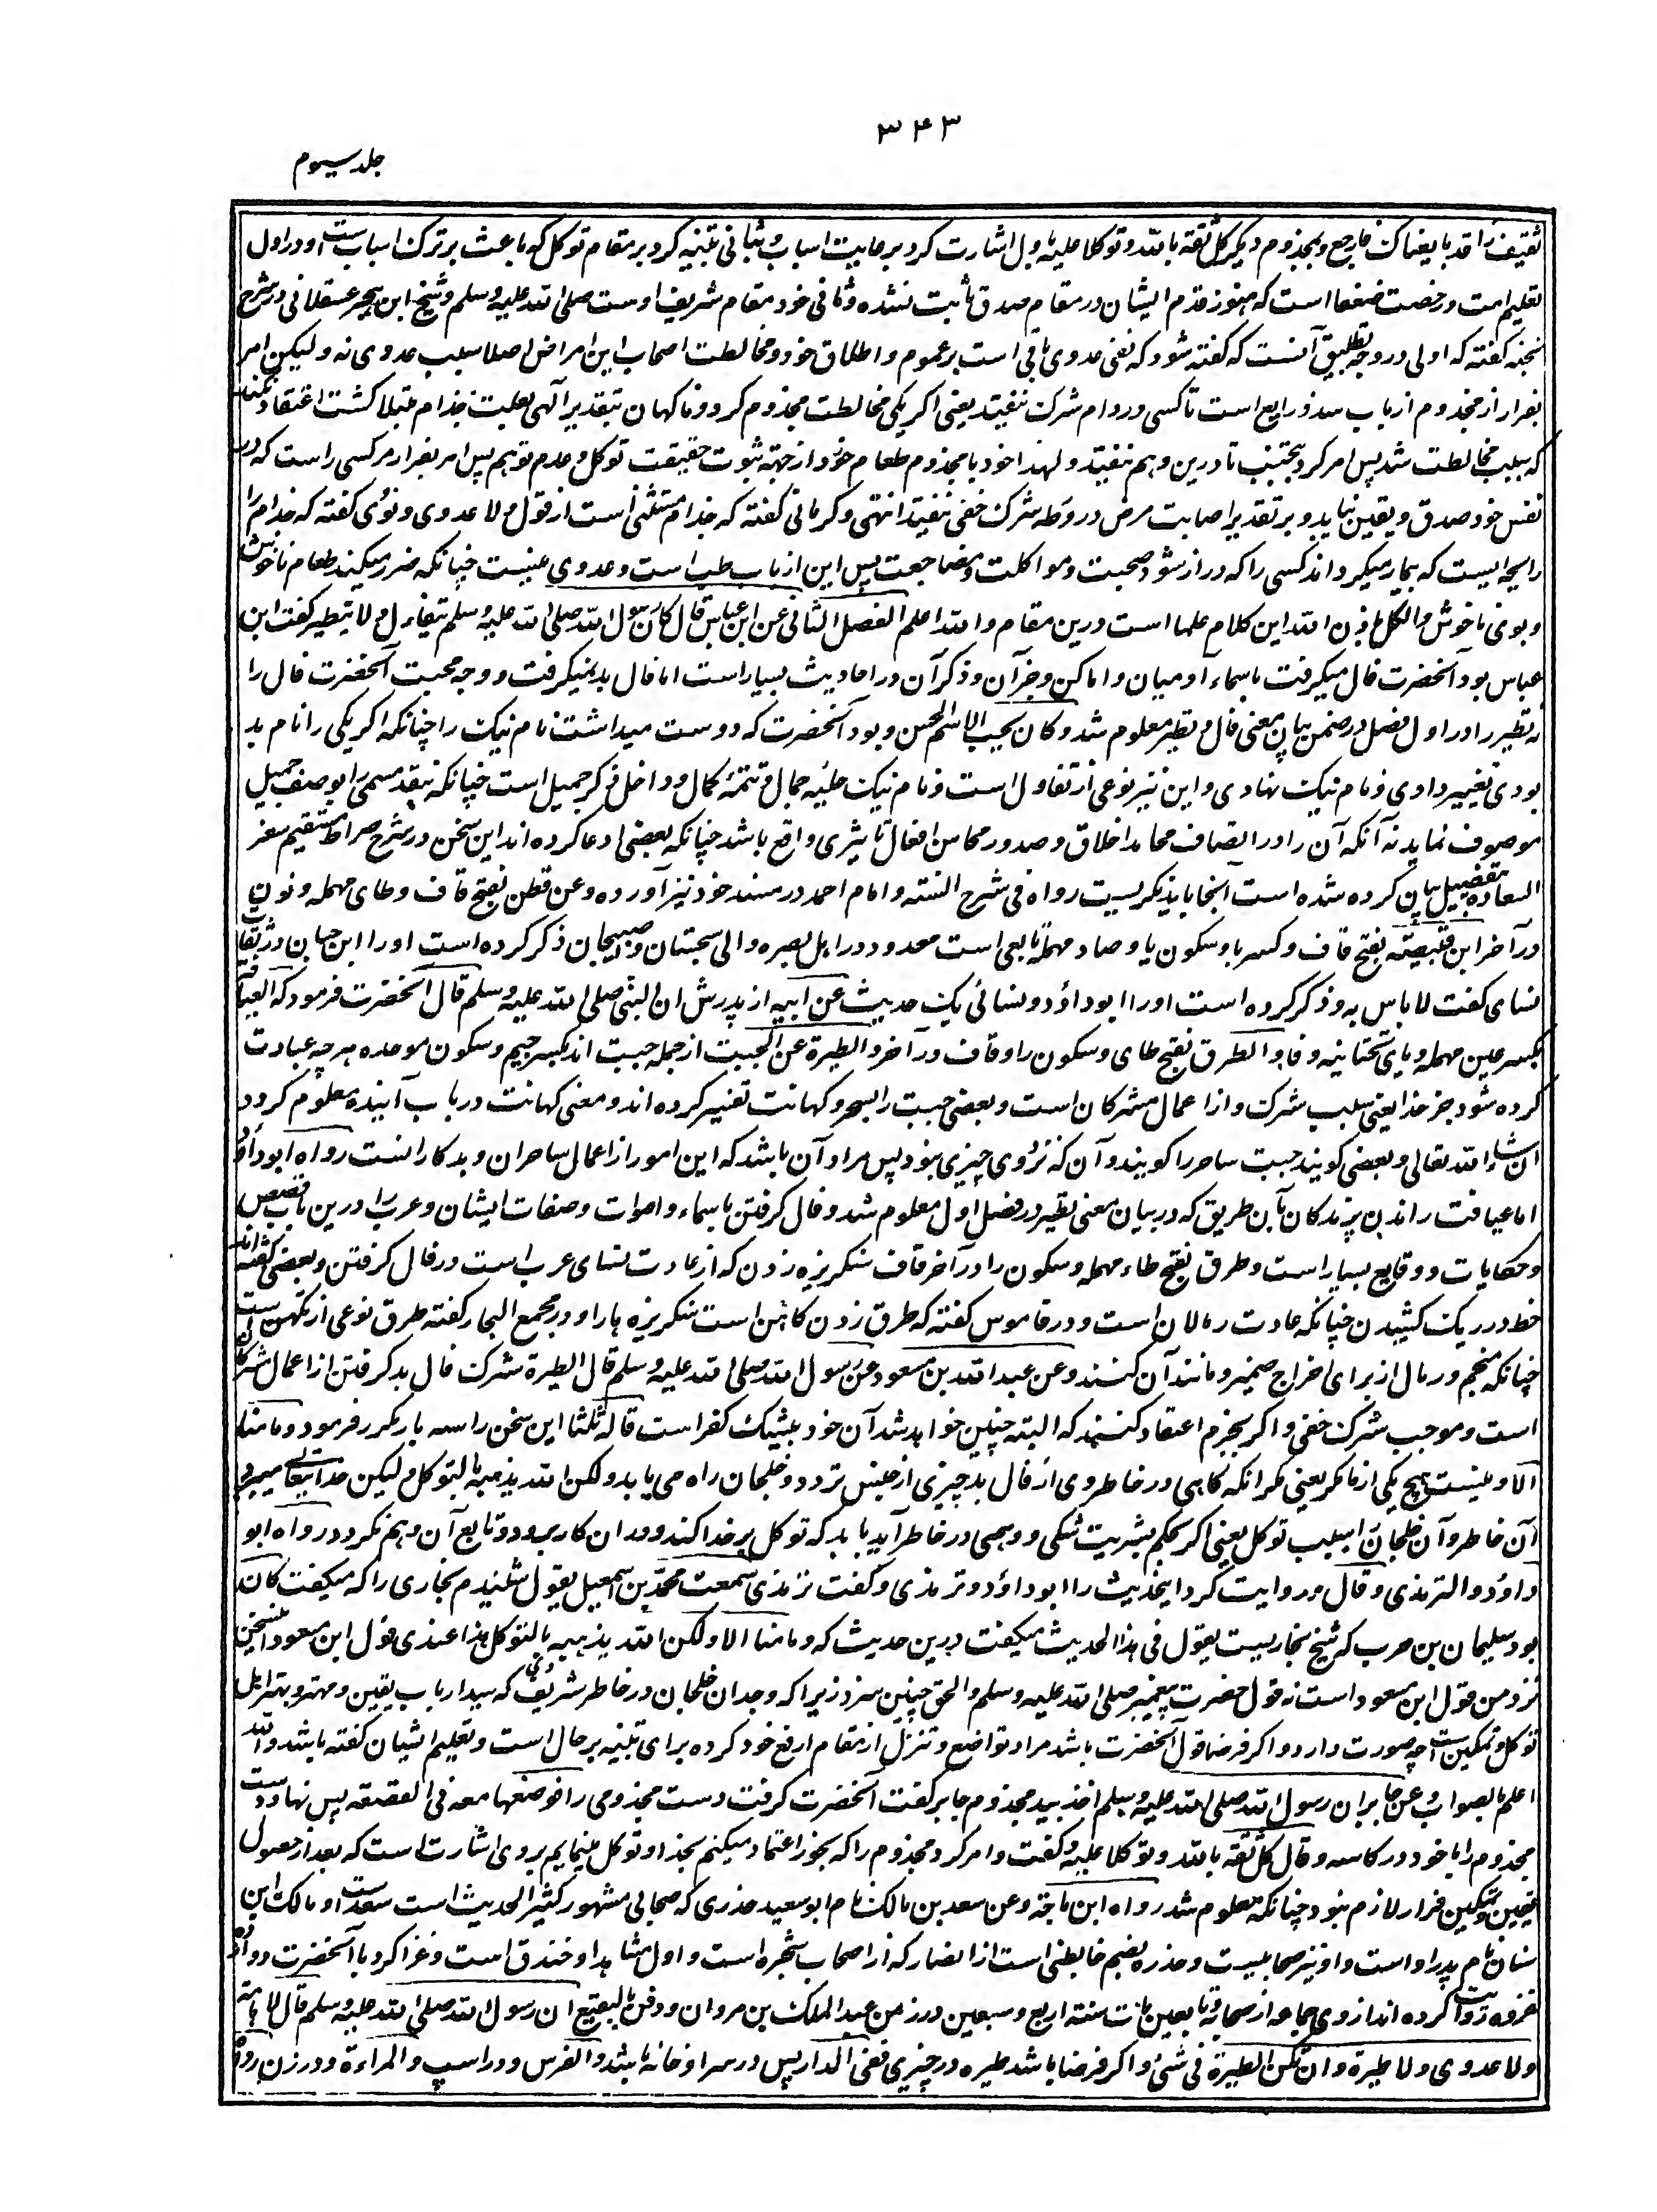 ۳۴۳
جلد سیوم
ثقیف را قد بایعناک فارجع و بمجذوم دیگر کل ثقة بالله و توکلا علیه باول اشارت کرد برعایت اسباب و بثانی تنبیه کرد بر مقام توکل که باعث بر ترک اسباب ست و در اول
تعلیم امت و رخصت ضعفا است که هنوز قدم ایشان در مقام صدق ثابت نشده و ثانی خود مقام شریف اوست صلی الله علیه وسلم و شیخ ابن حجر عسقلانی در شرح
نخبه گفته که اولی در وجه تطبیق آنست که گفته شود که نفی عدوی باقی است بر عموم و اطلاق خود و مخالطت اصحاب این امراض اصلا سبب عدوی نه و لیکن امر
بفرار از مجذوم از باب سد ذرایع است تا کسی در دام شرک نیفتد یعنی اگر یکی مخالطت مجذوم کرد و ناگهان بتقدیر آلهی بعلت جذام مبتلا گشت اعتقاد نکند
که بسبب مخالطت شد پس امر کرد بتجنب تا درین وهم نیفتد و لهذا خود با مجذوم طعام خورد از جهة ثبوت حقیقت توکل و عدم توهم پس امر بفرار مر کسی راست که در
نفس خود صدق و یقین نیابد و بر تقدیر اصابت مرض در ورطه شرک خفی نیفتد انتهی و کرمانی گفته که جذام مستثنی است از قول لا عدوی و نووی گفته که جذام را
رایحه ایست که بیمار میگرداند کسی را که دراز شود صحبت و مواکلت و مضاجعت پس این از باب طب است و عدوی نیست چنانکه ضرر میکند طعام ناخوش
و بوی ناخوش و الکل باذن الله این کلام علما است درین مقام و الله اعلم الفصل الثانی عن ابن عباس قال کان رسول الله صلی الله علیه وسلم یتفاءل و لا یتطیر گفت ابن
عباس بود آنحضرت فال میگرفت باسماء آدمیان و اماکن و جز آن و ذکر آن در احادیث بسیار است اما فال بد نمیگرفت و وجه محبت آنحضرت فال را
نه تطیر را در اول فصل در ضمن بیان معنی فال و تطیر معلوم شد و کان یحب الاسم الحسن و بود آنحضرت که دوست میداشت نام نیک را چنانکه اگر یکی را نام بد
بودی تغییر دادی و نام نیک نهادی و این نیز نوعی از تفاول است و نام نیک حلیه جمال و تتمه کمال و داخل ذکر جمیل است چنانکه بقدر مسمی را بوصف جمیل
موصوف نماید نه آنکه آن را در اتصاف محامد اخلاق و صدور محاسن افعال تاثیری واقع باشد چنانکه بعضی ادعا کرده اند این سخن در شرح صراط مستقیم سفر
السعاده بتفصیل بیان کرده شده است آنجا باید نگریست رواه فی شرح السنه و امام احمد در مسند خود نیز آورده و عن قطن بفتح قاف و طای مهمله و نون
در آخر ابن قبیصة بفتح قاف و کسر با و سکون یا و صاد مهمله تابعی است معدود در اهل بصره والی سجستان و صبیجان ذکر کرده است او را ابن حبان در ثقات
نسای گفت لا باس به و ذکر کرده است او را ابو داؤد و نسائی یک حدیث عن ابیه از پدرش ان النبی صلی الله علیه وسلم قال آنحضرت فرمود که العیافة
بکسر عین مهمله و یای تحتانیه و فا و الطرق بفتح طای و سکون را و قاف در آخر و الطیرة عن الجبت از جمله جبت اند بکسر جیم و سکون موحده هر چه عبادت
کرده شود جز خدا یعنی سبب شرک و از اعمال مشرکان است و بعضی جبت را بسحر و کهانت تفسیر کرده اند و معنی کهانت در باب آینده معلوم گردد
ان شاء الله تعالی و بعضی گویند جبت ساحر را گویند و آن که نزدوی چیزی نبود پس مراد آن باشد که این امور از اعمال ساحران و بدکارانست رواه ابوداؤد
اما عیافت راندن پرندگان بآن طریق که در بیان معنی تطیر در فصل اول معلوم شد و فال گرفتن باسماء و اصوات و صفات ایشان و عرب را درین باب قصص
و حکایات و وقایع بسیار است و طرق بفتح طاء مهمله و سکون را در آخر قاف سنگریزه زدن که از عادت نسای عرب است در فال گرفتن و بعضی گفته اند
خط در ریگ کشیدن چنانکه عادت رمالان است و در قاموس گفته که طرق زدن کاهن است سنگریزه ها را و در مجمع البحار گفته طرق نوعی از تکهن ست
چنانکه منجم و رمال از برای اخراج ضمیر و مانند آن کنند و عن عبد الله بن مسعود عن رسول الله صلی الله علیه وسلم قال الطیرة شرک فال بد گرفتن از اعمال شرک
است و موجب شرک خفی و اگر بجزم اعتقاد کنند که البته چنین خواهد شد آن خود بیشک کفر است قاله ثلثا این سخن را سه بار مکرر فرمود و ما منا
الا و نیست هیچ یکی از ما مگر یعنی مگر آنکه گاهی در خاطر وی از فال بد چیزی از جنس تردد و خلجان راه می یابد و لکن الله یذهبه بالتوکل و لیکن خدا تعالی میبرد
آن خاطر و آن خلجان را بسبب توکل یعنی اگر بحکم بشریت شکی و وهمی در خاطر آید باید که توکل بر خدا کند و در آن کار برود و تابع آن وهم نگردد رواه ابو
داؤد و الترمذی و قال و روایت کرد اینحدیث را ابوداؤد و ترمذی و گفت ترمذی سمعت محمد بن اسمعیل یقول شنیدم بخاری را که میگفت کان
بود سلیمان بن حرب که شیخ بخاریست یقول فی هذا الحدیث میگفت درین حدیث که و ما منا الا و لکن الله یذهبه بالتوکل هذا عندی قول ابن مسعود این سخن
نزد من قول ابن مسعود است نه قول حضرت پیغمبر صلی الله علیه وسلم و الحق چنین سزد زیرا که وجدان خلجان در خاطر شریف وی که سید ارباب یقین و مهتر و بهتر اهل
توکل و تمکین ست چه صورت دارد و اگر فرضا قول آنحضرت باشد مراد تواضع و تنزل از مقام ارفع خود کرده برای تنبیه بر حال است و تعلیم ایشان گفته باشد و الله
اعلم بالصواب و عن جابر ان رسول الله صلی الله علیه وسلم اخذ بید مجذوم جابر گفت آنحضرت گرفت دست مجذومی را فوضعها معه فی القصعة پس نهاد دست
مجذوم را با خود در کاسه و قال کل ثقة بالله و توکلا علیه و گفت و امر کرد مجذوم را که بخور اعتماد میکنم بخدا و توکل مینمایم بر وی اشارت است که بعد از حصول
یقین و تمکین فرار لازم نبود چنانکه معلوم شد رواه ابن ماجة و عن سعد بن مالک نام ابو سعید خدری که صحابی مشهور کثیر الحدیث است سعد ست او مالک ابن
سنان نام پدر او است و او نیز صحابیست و خدره بضم خا بطنی است از انصار که از اصحاب شجره است و اول مشاهد او خندق است و غزا کرد با آنحضرت دوازده
غزوه روایت کرده اند از وی جماعه از صحابه و تابعین مات سنة اربع و سبعین در زمن عبد الملک بن مروان و دفن بالبقیع ان رسول الله صلی الله علیه وسلم قال لا هامة
و لا عدوی و لا طیرة و ان تکن الطیرة فی شئ و اگر فرضا باشد طیره در چیزی ففی الدار پس در سرا و خانه باشد و الفرس و در اسپ و المراءة و در زن رواه